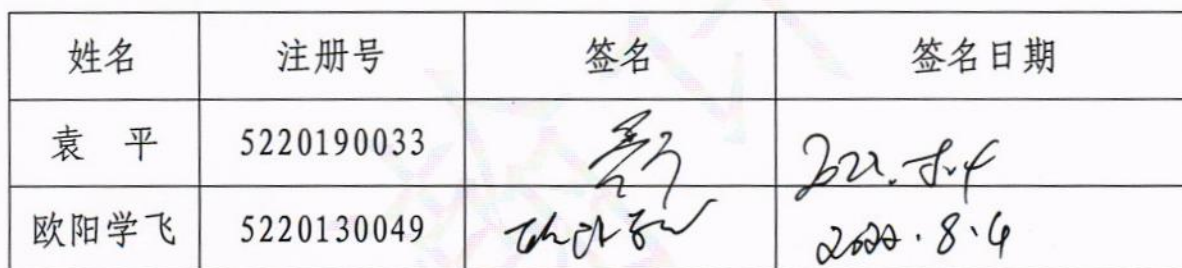 姓名 注册号 签名 签名日期
袁 平 5220190033
欧阳学飞 5220130049 2022.8.4